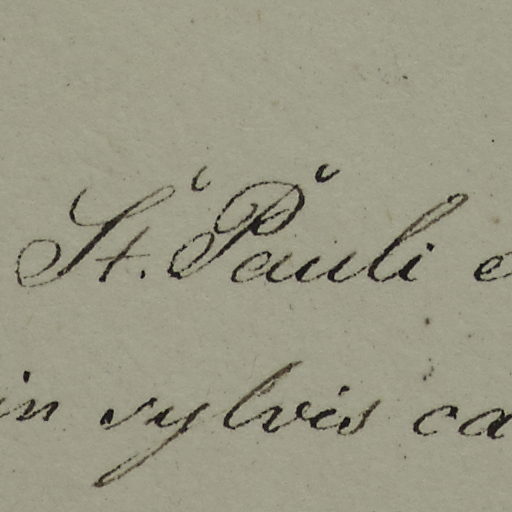 St. Pauli
in sylvis ca